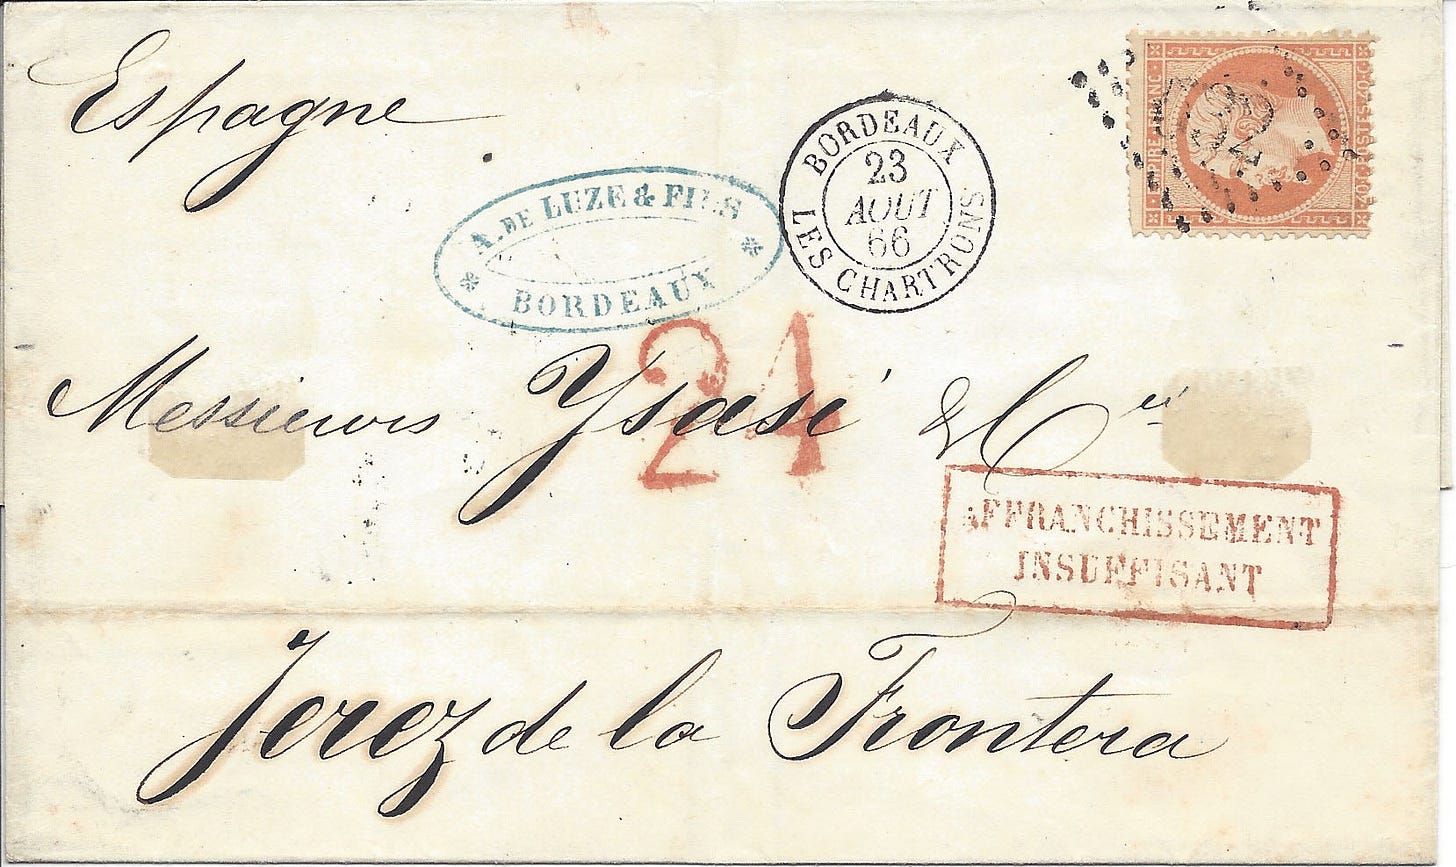 Espagne
A. DE LUZE & FILS
BORDEAUX
BORDEAUX
23
AOUT
66
LES CHARTRONS
40 C POSTES 40 C
24
Messieurs Ysasi & Cie
AFFRANCHISSEMENT
INSUFFISANT
Jerez de la Frontera